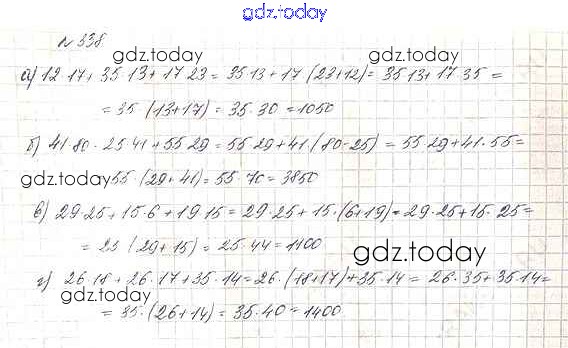 gdz.today
№338
gdz.today gdz.today
а) 12·17+35·13+17·23=35·13+17·(23+12)=35·13+17·35=
=35·(13+17)=35·30=1050
б) 41·80-25·41+55·29=55·29+41·(80-25)=55·29+41·55=
gdz.today 55·(29+41)=55·70=3850
в) 29·25+15·6+19·15=29·25+15·(6+19)=29·25+15·25=
=25·(29+15)=25·44=1100
gdz.today
г) 26·18+26·17+35·14=26·(18+17)+35·14=26·35+35·14=
gdz.today
=35·(26+14)=35·40=1400